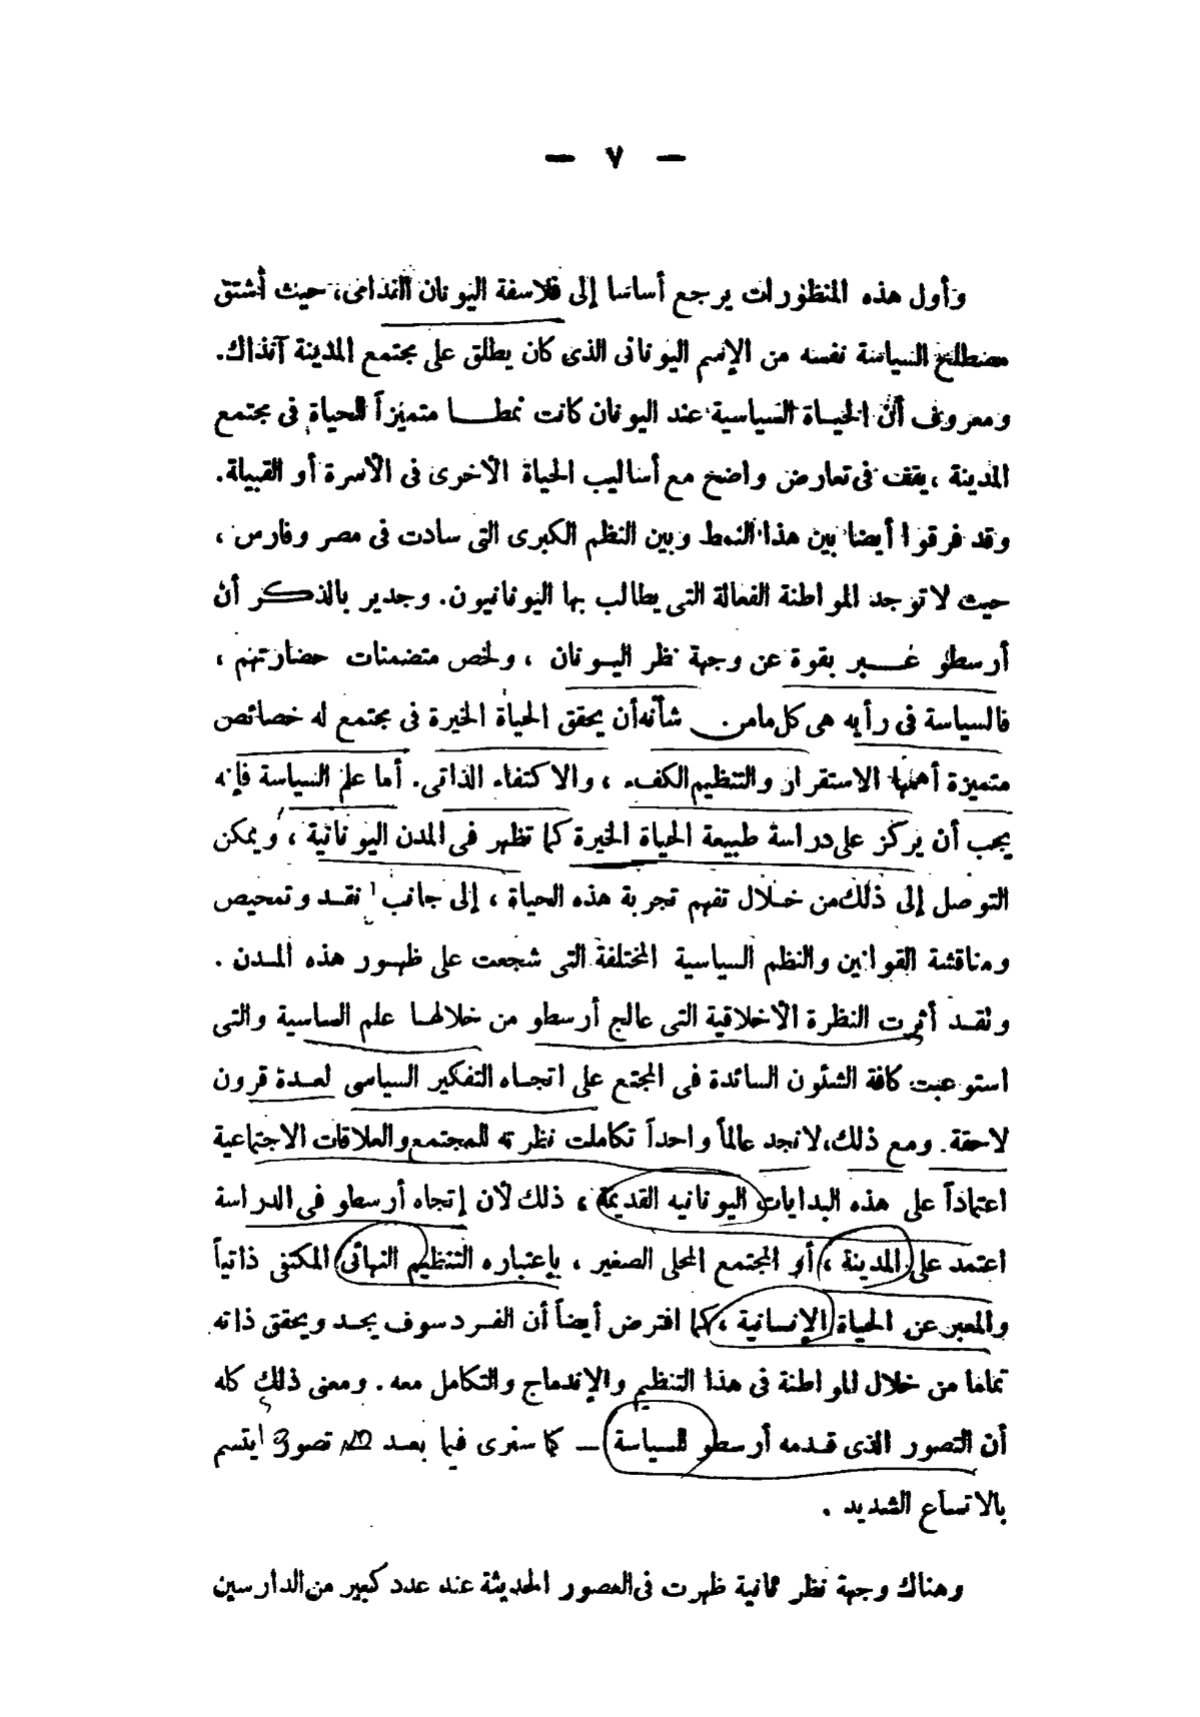 — ٧ —
وأول هذه المنظورات يرجع أساسا إلى فلاسفة اليونان القدامى، حيث أشتق
مصطلح السياسة نفسه من الإسم اليونانى الذى كان يطلق على مجتمع المدينة آنذاك.
ومعروف أن الحياة السياسية عند اليونان كانت نمطا متميزاً للحياة فى مجتمع
المدينة ، يقف فى تعارض واضح مع أساليب الحياة الأخرى فى الأسرة أو القبيلة.
وقد فرقوا أيضا بين هذا النمط وبين النظم الكبرى التى سادت فى مصر وفارس ،
حيث لا توجد المواطنة الفعالة التى يطالب بها اليونانيون. وجدير بالذكر أن
أرسطو عبر بقوة عن وجهة نظر اليونان ، ولخص متضمنات حضارتهم ،
فالسياسة فى رأيه هى كل مامن شأنه أن يحقق الحياة الخيرة فى مجتمع له خصائص
متميزة أهمها الاستقرار والتنظيم الكفء ، والاكتفاء الذاتى. أما علم السياسة فإنه
يجب أن يركز على دراسة طبيعة الحياة الخيرة كما تظهر فى المدن اليونانية ، ويمكن
التوصل إلى ذلك من خلال تفهم تجربة هذه الحياة ، إلى جانب نقد وتمحيص
ومناقشة القوانين والنظم السياسية المختلفة التى شجعت على ظهور هذه المدن .
ولقد أثرت النظرة الأخلاقية التى عالج أرسطو من خلالها علم الساسية والتى
استوعبت كافة الشئون السائدة فى المجتمع على اتجاه التفكير السياسى لعدة قرون
لاحقة. ومع ذلك، لا نجد عالماً واحداً تكاملت نظرته للمجتمع والعلاقات الاجتماعية
اعتماداً على هذه البدايات اليونانيه القديمة ، ذلك لأن إتجاه أرسطو فى الدراسة
اعتمد على المدينة ، أو المجتمع المحلى الصغير ، بإعتباره التنظيم النهائى المكتفى ذاتياً
والمعبر عن الحياة الإنسانية ، كما افترض أيضاً أن الفرد سوف يجد ويحقق ذاته
تماما من خلال المواطنة فى هذا التنظيم والإندماج والتكامل معه . ومعنى ذلك كله
أن التصور الذى قدمه أرسطو للسياسة — كما سنرى فيما بعد تصور يتسم
بالاتساع الشديد .
وهناك وجهة نظر ثانية ظهرت فى العصور الحديثة عند عدد كبير من الدارسين